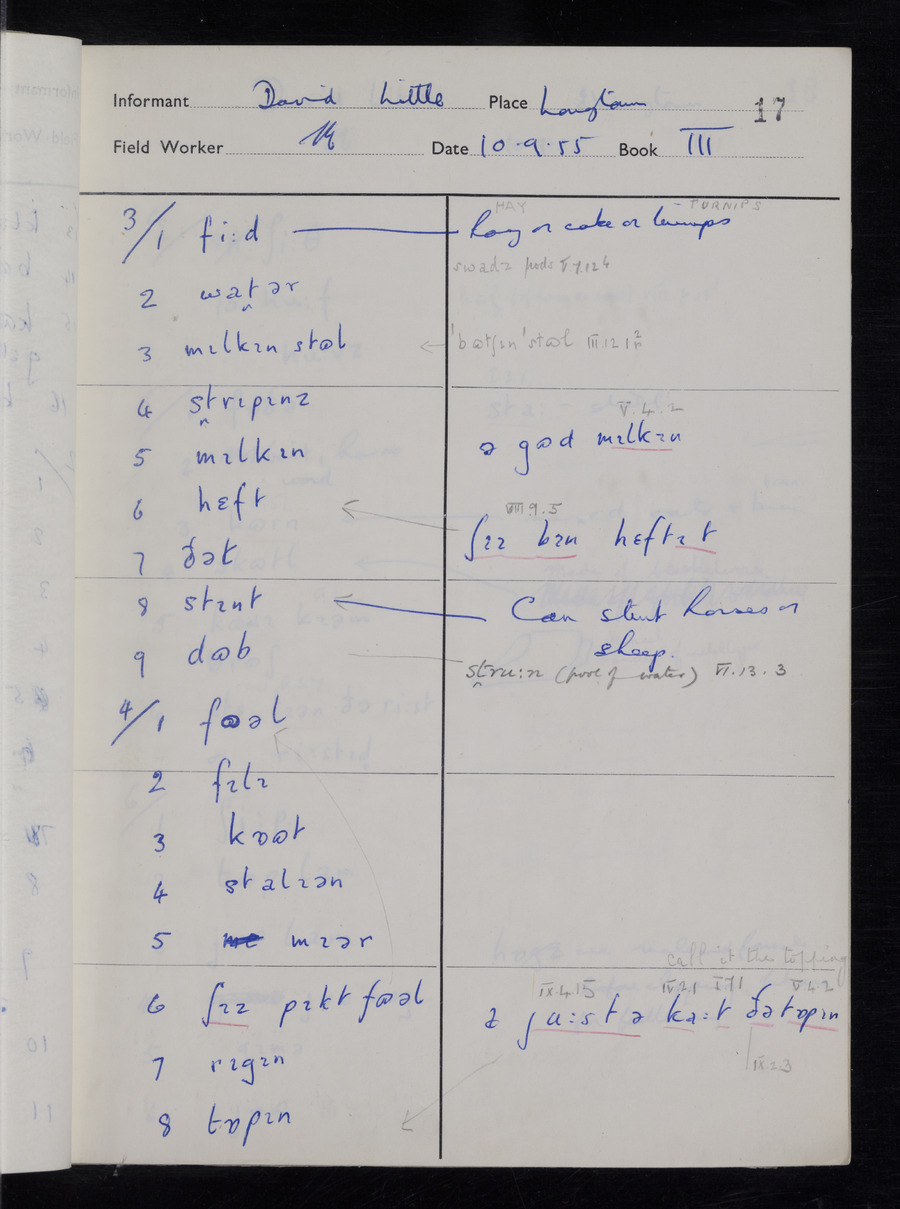 Informant David Little Place Longtown 17
Field Worker Date 10.9.55 Book III
HAY - TURNIPS
3/1 fiːd hay or cake or turnips
swadz pods V.7.12
2 wat̪ər
3 mɪlkɪn stɷl 'bɷtʃɪn' stɷl III.12.1
4 st̪rɪpɪnz V.4.2
5 mɪlkɪn ə gɷd mɪlkɪn
6 hɛft VIII.9.5
ʃɪz bɪn hɛftɪt
7 ðət
8 stɪnt Can stint horses or
sheep.
9 dɷb st̪ruːn (pool of water) VI.13.3
4/1 fɷəl
2 fɪlɪ
3 kɒɷt
4 stalɪən
5 mɪər
call it the topping
6 ʃɪz pɪkt fɷəl IX.4.15 V.4.2
ə juːst ə kaːt ðə tɒpɪn
7 rɪgɪn IX.2.3
8 tɒpɪn